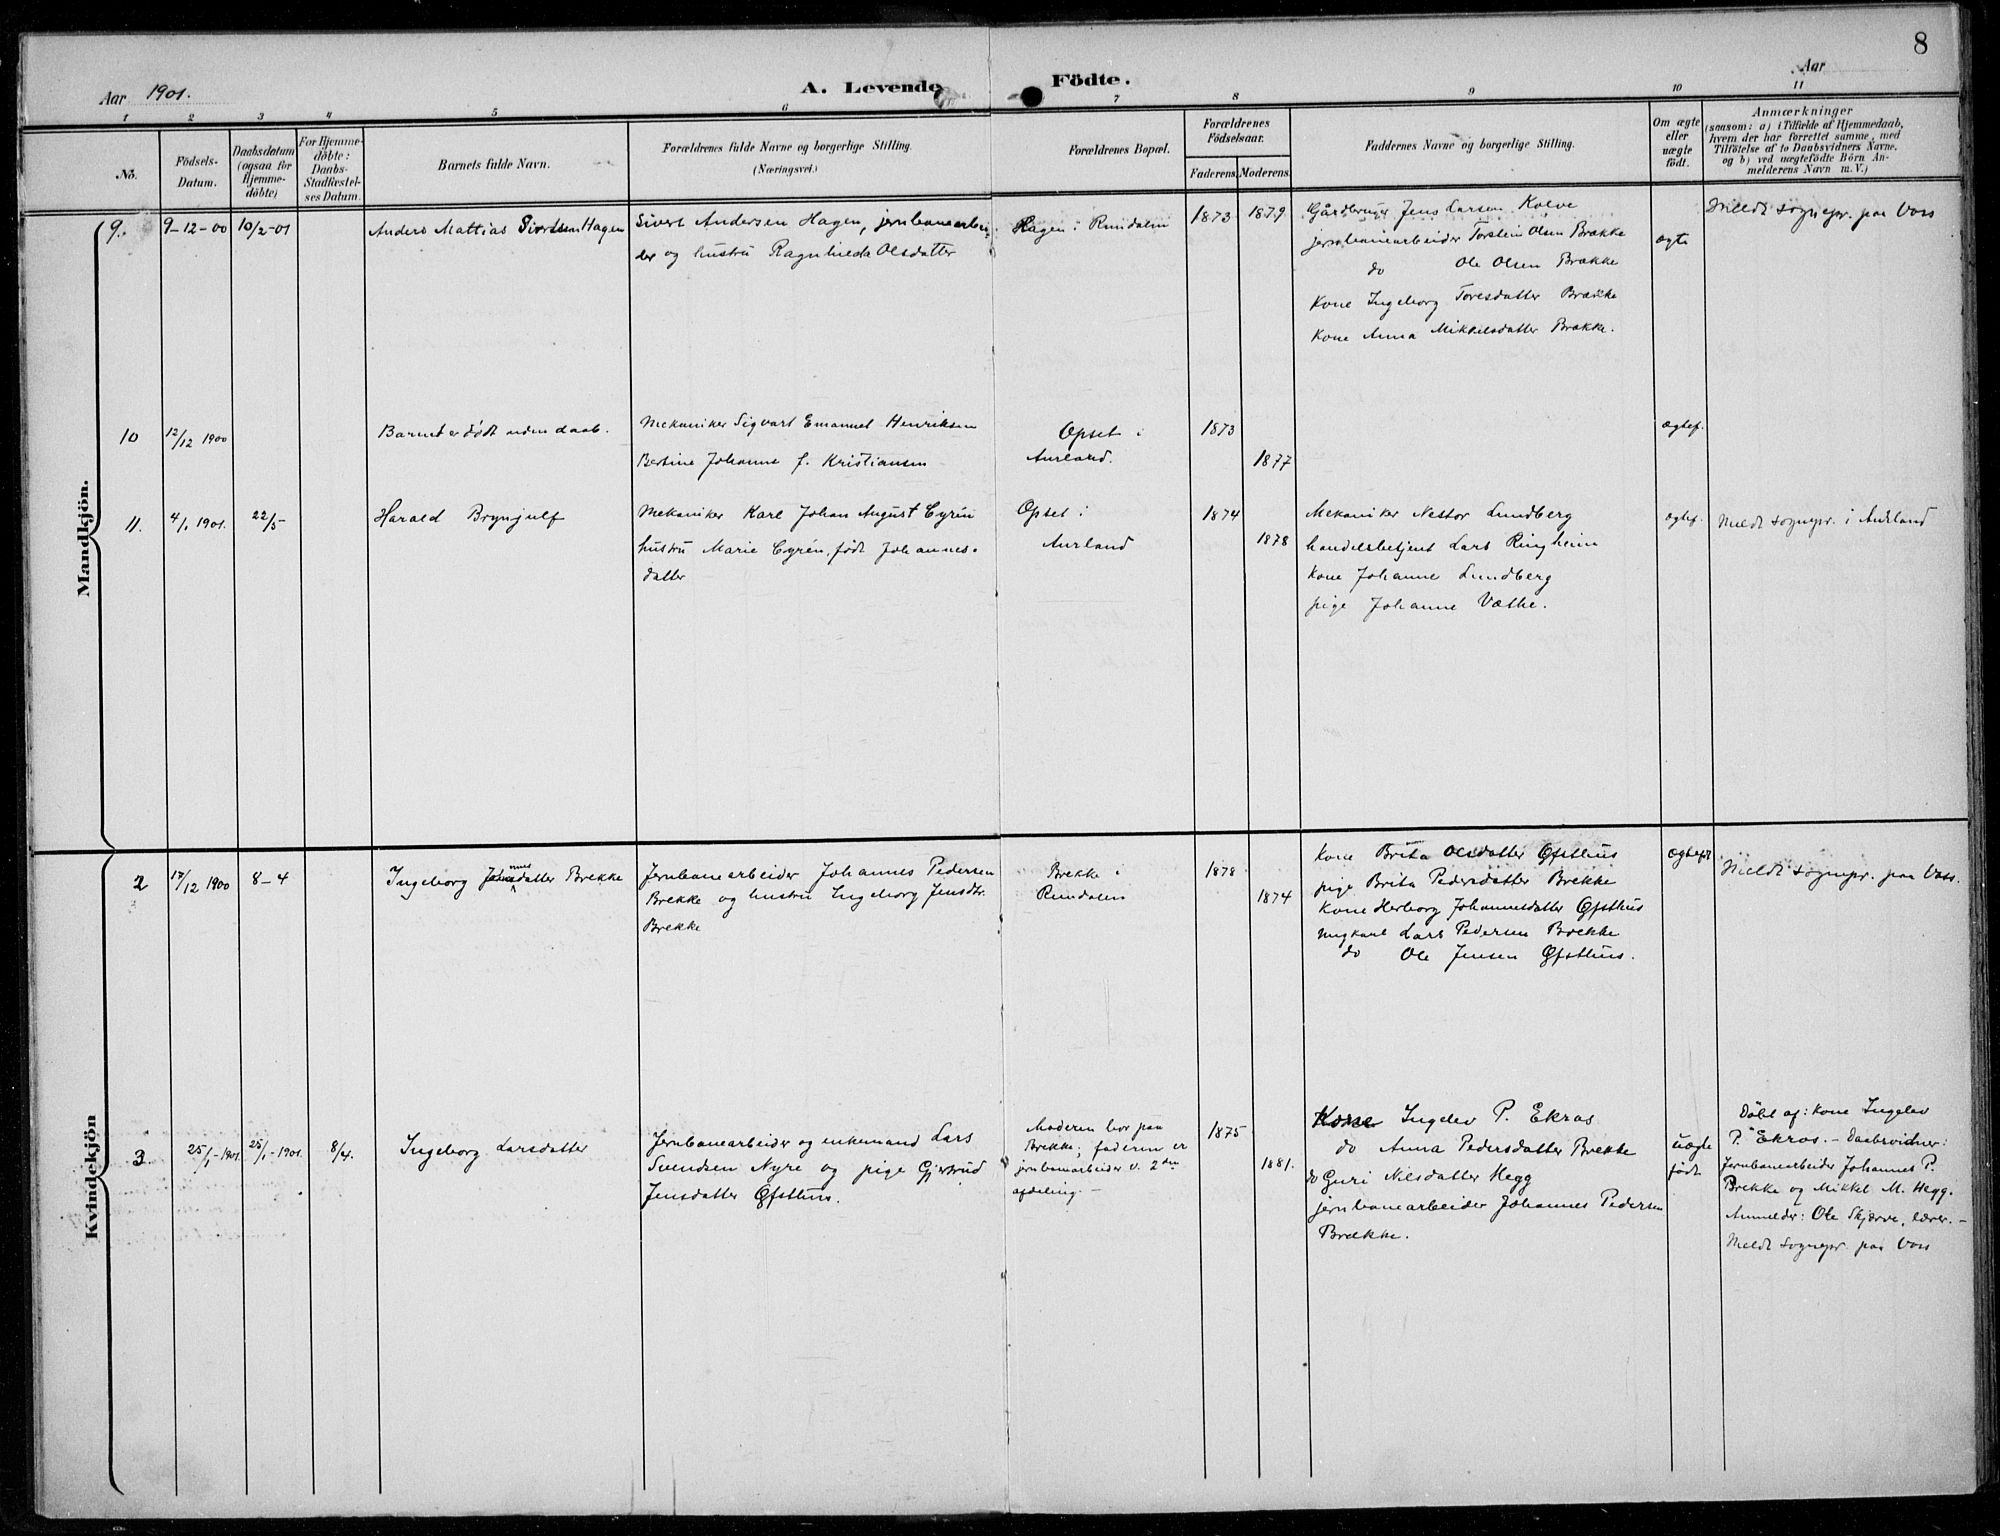 8
Aar 1901.
A. Levende Födte.
Aar
1 2 3 4 5 6 7 8 9 10 11
No.
Födsels-
Datum.
Daabsdatum
(ogsaa for
Hjemme-
döbte)
For Hjemme-
döbte:
Daabs-
Stadfæstel-
ses Datum.
Barnets fulde Navn.
Forældrenes fulde Navne og borgerlige Stilling.
(Næringsvei.)
Forældrenes Bopæl.
Forældrenes
Födselsaar.
Faderens. Moderens.
Faddernes Navne og borgerlige Stilling.
Om ægte
eller
uægte
födt.
Anmærkninger
(saasom: a) i Tilfælde af Hjemmedaab,
hvem der har forrettet samme, med
Tilföielse af to Daabsvidners Navne.
og b) ved uægtefödte Börn An-
melderens Navn m. V.)
Mandkjön.
9. 9-12-00 10/2-01
Anders Mattias Sivertsen Hagen
Sivert Andersen Hagen, jernbanearbei-
der og hustru Ragnhilda Olsdatter
Hagen i Rundalen
1873 1879
Gårdbruger Jens Larsen Kolve
jernbanearbeider Torstein Olsen Brække
do Ole Olsen Brække
Kone Ingeborg Toresdatter Brække
Kone Anna Mikkelsdatter Brække.
ægte
Meldt sognepr. paa Voss
10 12/12 1900
Barnet er dödt uden daab.
Mekaniker Sigvart Emanuel Henriksen
Bertine Johanne f. Kristiansen
Opset i
Aurland.
1873
1877
ægtef.
11. 4/1 1901. 22/5-
Harald Brynjulf
Mekaniker Karl Johan August Cyrén
hustru Marie Cyrén, födt Johannes-
datter
Opset i
Aurland
1874
1878
Mekaniker Nestor Lundberg
handelsbetjent Lars Ringheim
Kone Johanne Lundberg
pige Johanne Væthe.
ægtef.
Meldt sognepr. i Aurland
Kvindekjön
2 17/12 1900 8-4
Ingeborg Johannesdatter Brekke
Jernbanearbeider Johannes Pedersen
Brekke og hustru Ingeborg Jensdtr.
Brekke
Brekke i
Rundalen
1878
1874
Kone Brita Olsdatter Øfsthus
pige Brita Pedersdatter Brekke
Kone Herborg Johannesdatter Øfsthus
ungkarl Lars Pedersen Brekke
do Ole Jensen Øfsthus.
ægtefdt
Meldt sognepr. paa Voss.
3. 25/1-1901. 25/1-1901. 8/4.
Ingeborg Larsdatter
Jernbanearbeider og enkemand Lars
Svendsen Nyre og pige Gjertrud
Jensdatter Øfsthus.
Moderen bor paa
Brekke; faderen er
jernbanarbeider v. 2den
afdeling.-
1875
1881.
Kone Ingelev P. Ekras
do Anna Pedersdatter Brekke
do Guri Nilsdatter Hegg
jernbanearbeider Johannes Pedersen
Brække.
uægte
födt
Döbt af: Kone Ingelev
P. Ekras.- Daabsvidner:
Jernbanearbeider Johannes P.
Brekke og Mikkel M. Hegg.
Anmelder: Ole Skjerve, lærer.-
Meldt sognepr. paa Voss